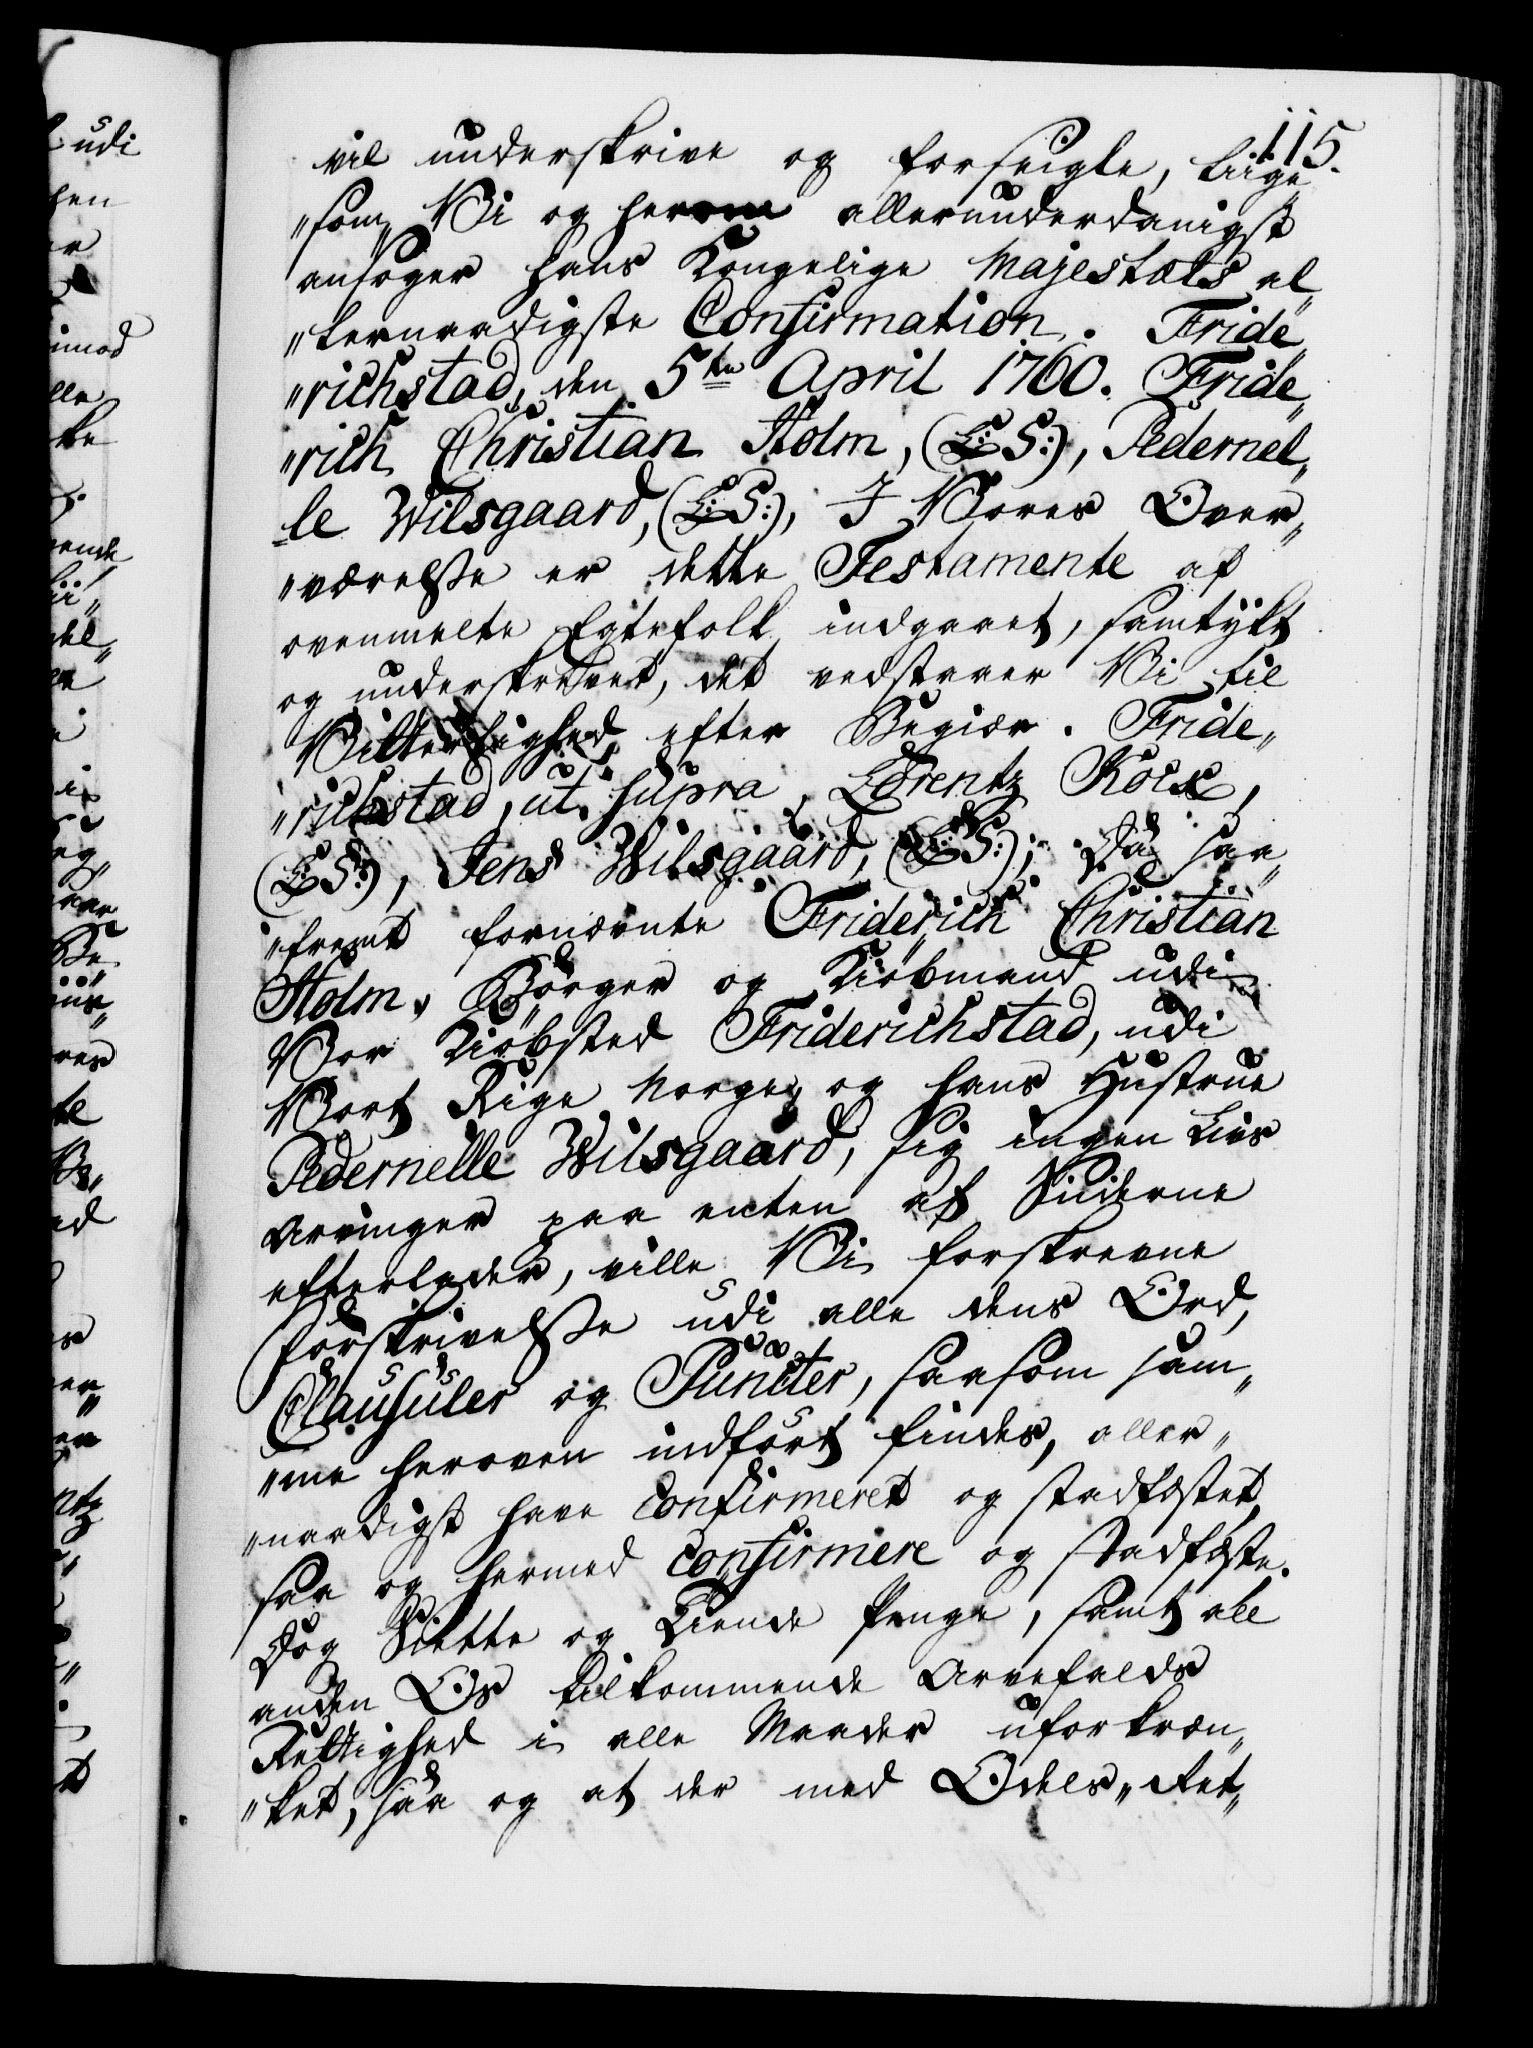 115.
vil underskrive og forseigle, liige
"som Vi og herom allerunderdanigst
ansøger Hans Kongelige Majestæts al"
"lernaadigste Confirmation. Fride"
"richstad, den 5te April 1760. Fride"
"rich Christian Holm, (L:S:), Pedernel"
le Wilsgaard, (L:S:), I Vores Over"
"værelsse er dette Testamente af
ovenmelte Egtefolk indgaaet, samtÿkt
og underskrevet, det vedstaaer Vi til
Vitterlighed efter Begiær. Fride"
"richstad, ut supra, Lorentz Kock,
(L:S:), Jens Wilsgaard, (L:S:); Da saa"
"fremt fornævnte Friderich Christian
Holm, Börger og Kiöbmand udi
Vor Kiöbsted Friderichstad, udi
Vort Rige Norge, og hans Hustrue
Pedernelle Wilsgaard, sig ingen Livs
Arvinger paa enten af Siiderne
efterlader, ville Vi forskrevne
Forskrivelsse udi alle dens Ord,
Clausuler og Puncter, saasom sam"
"me heroven indført findes, aller"
"naadigst have Confirmeret og stadfæstet,
saa og hermed Confirmere og stadfæste.
Dog Siette og Tiende Penge, samt all
anden Os tilkommende Arvefalds
Rettighed i alle Maader uforkræn"
"ket, saa og at der med Odels-Ret"
udi
imod
elle